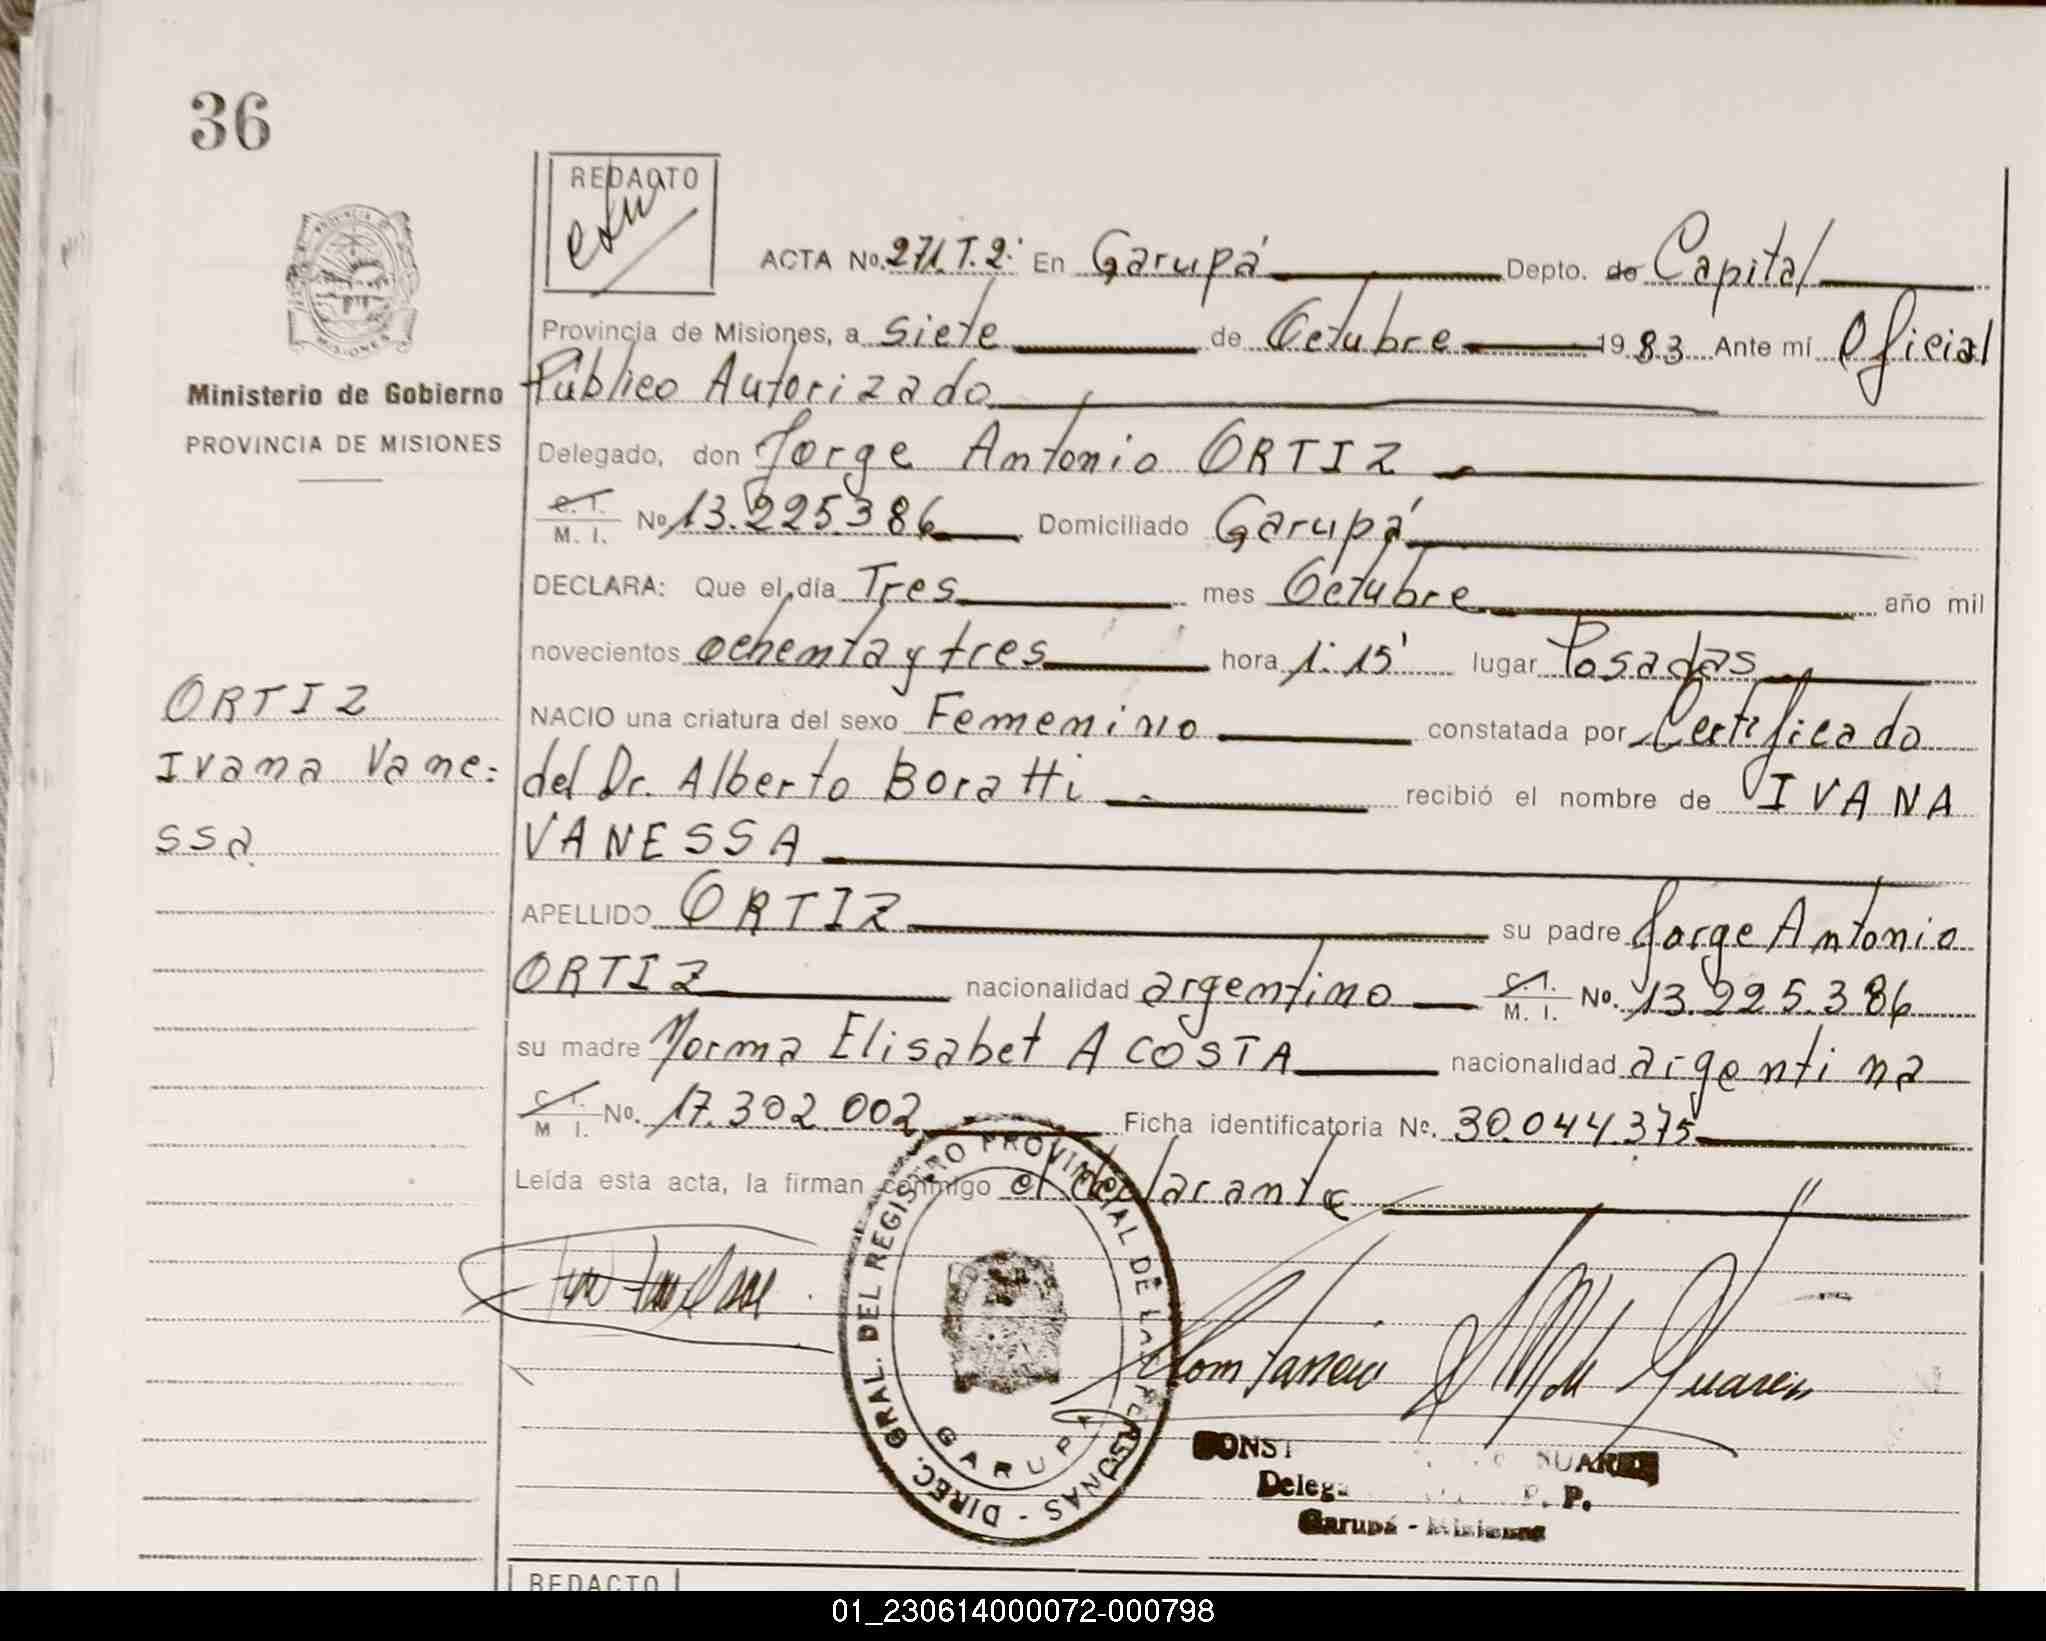 36
REDACTO
ACTA No. 271. T. 2: En Garupá Depto. de Capital
Provincia de Misiones, a siete de Octubre 1983 Ante mí Oficial
Público Autorizado
Ministerio de Gobierno
PROVINCIA DE MISIONES
Delegado, don Jorge Antonio ORTIZ
C. I. / M. I. No 13.225.386 Domiciliado Garupá
DECLARA: Que el día Tres mes Octubre año mil
novecientos ochenta y tres hora 1:15' lugar Posadas
NACIO una criatura del sexo Femenino constatada por Certificado
del Dr. Alberto Boratti recibió el nombre de IVANA
VANESSA
ORTIZ
Ivana Vane=
ssa
APELLIDO ORTIZ su padre Jorge Antonio
ORTIZ nacionalidad argentino C. I. / M. I. No. 13.225.386
su madre Norma Elisabet ACOSTA nacionalidad argentina
C. I. / M I. No. 17.302.002 Ficha identificatoria No. 30.044.375
Leída esta acta, la firman conmigo el declarante
DIREC. GRAL. DEL REGISTRO PROVINCIAL DE LAS PERSONAS -
GARUPA
SUAREZ
P. P.
Garupá - Misiones
REDACTO
01_230614000072-000798